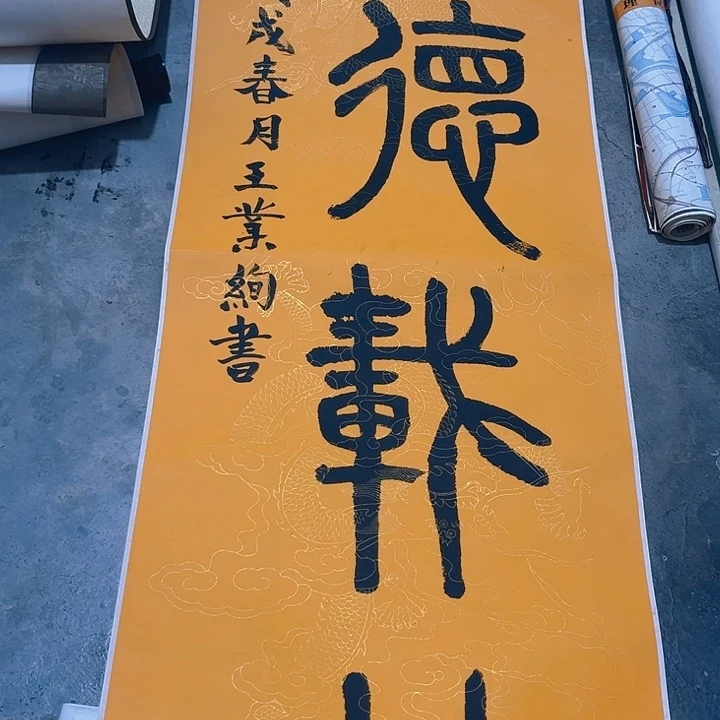 德載
戌春月王業絢書